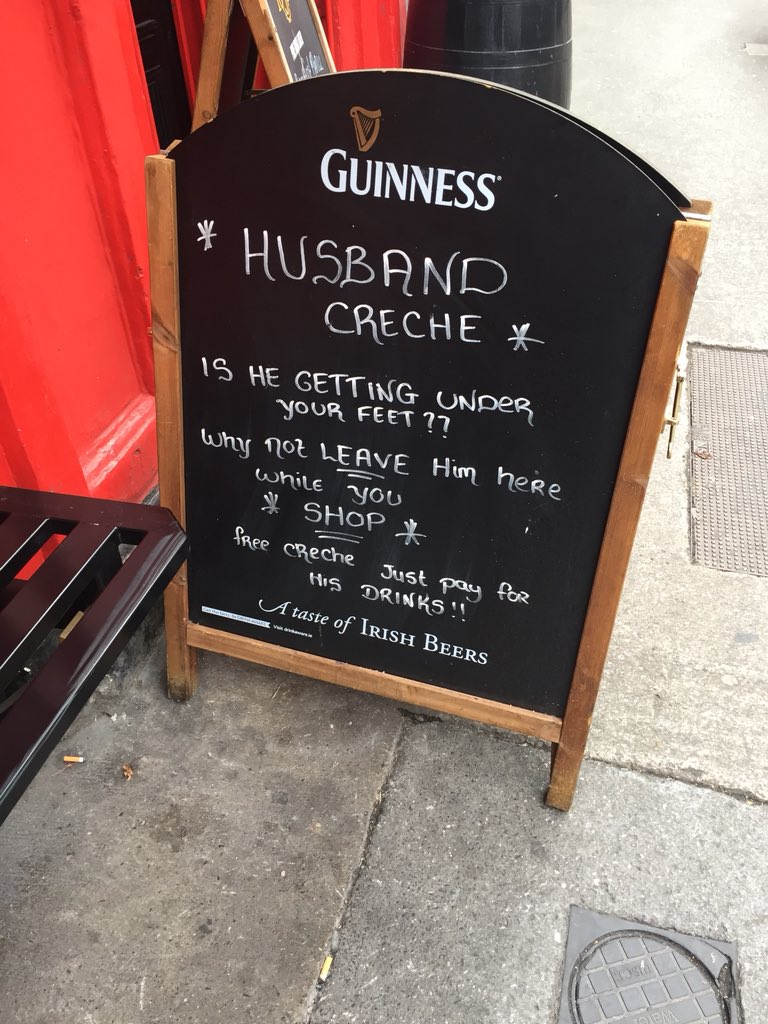 GUINNESS
* HUSBAND
CRECHE *
IS HE GETTING UNDER
YOUR FEET ??
Why not LEAVE Him here
while you
* SHOP *
free creche Just pay for
HIS DRINKS!!
A taste of IRISH BEERS
Visit drinkaware.ie